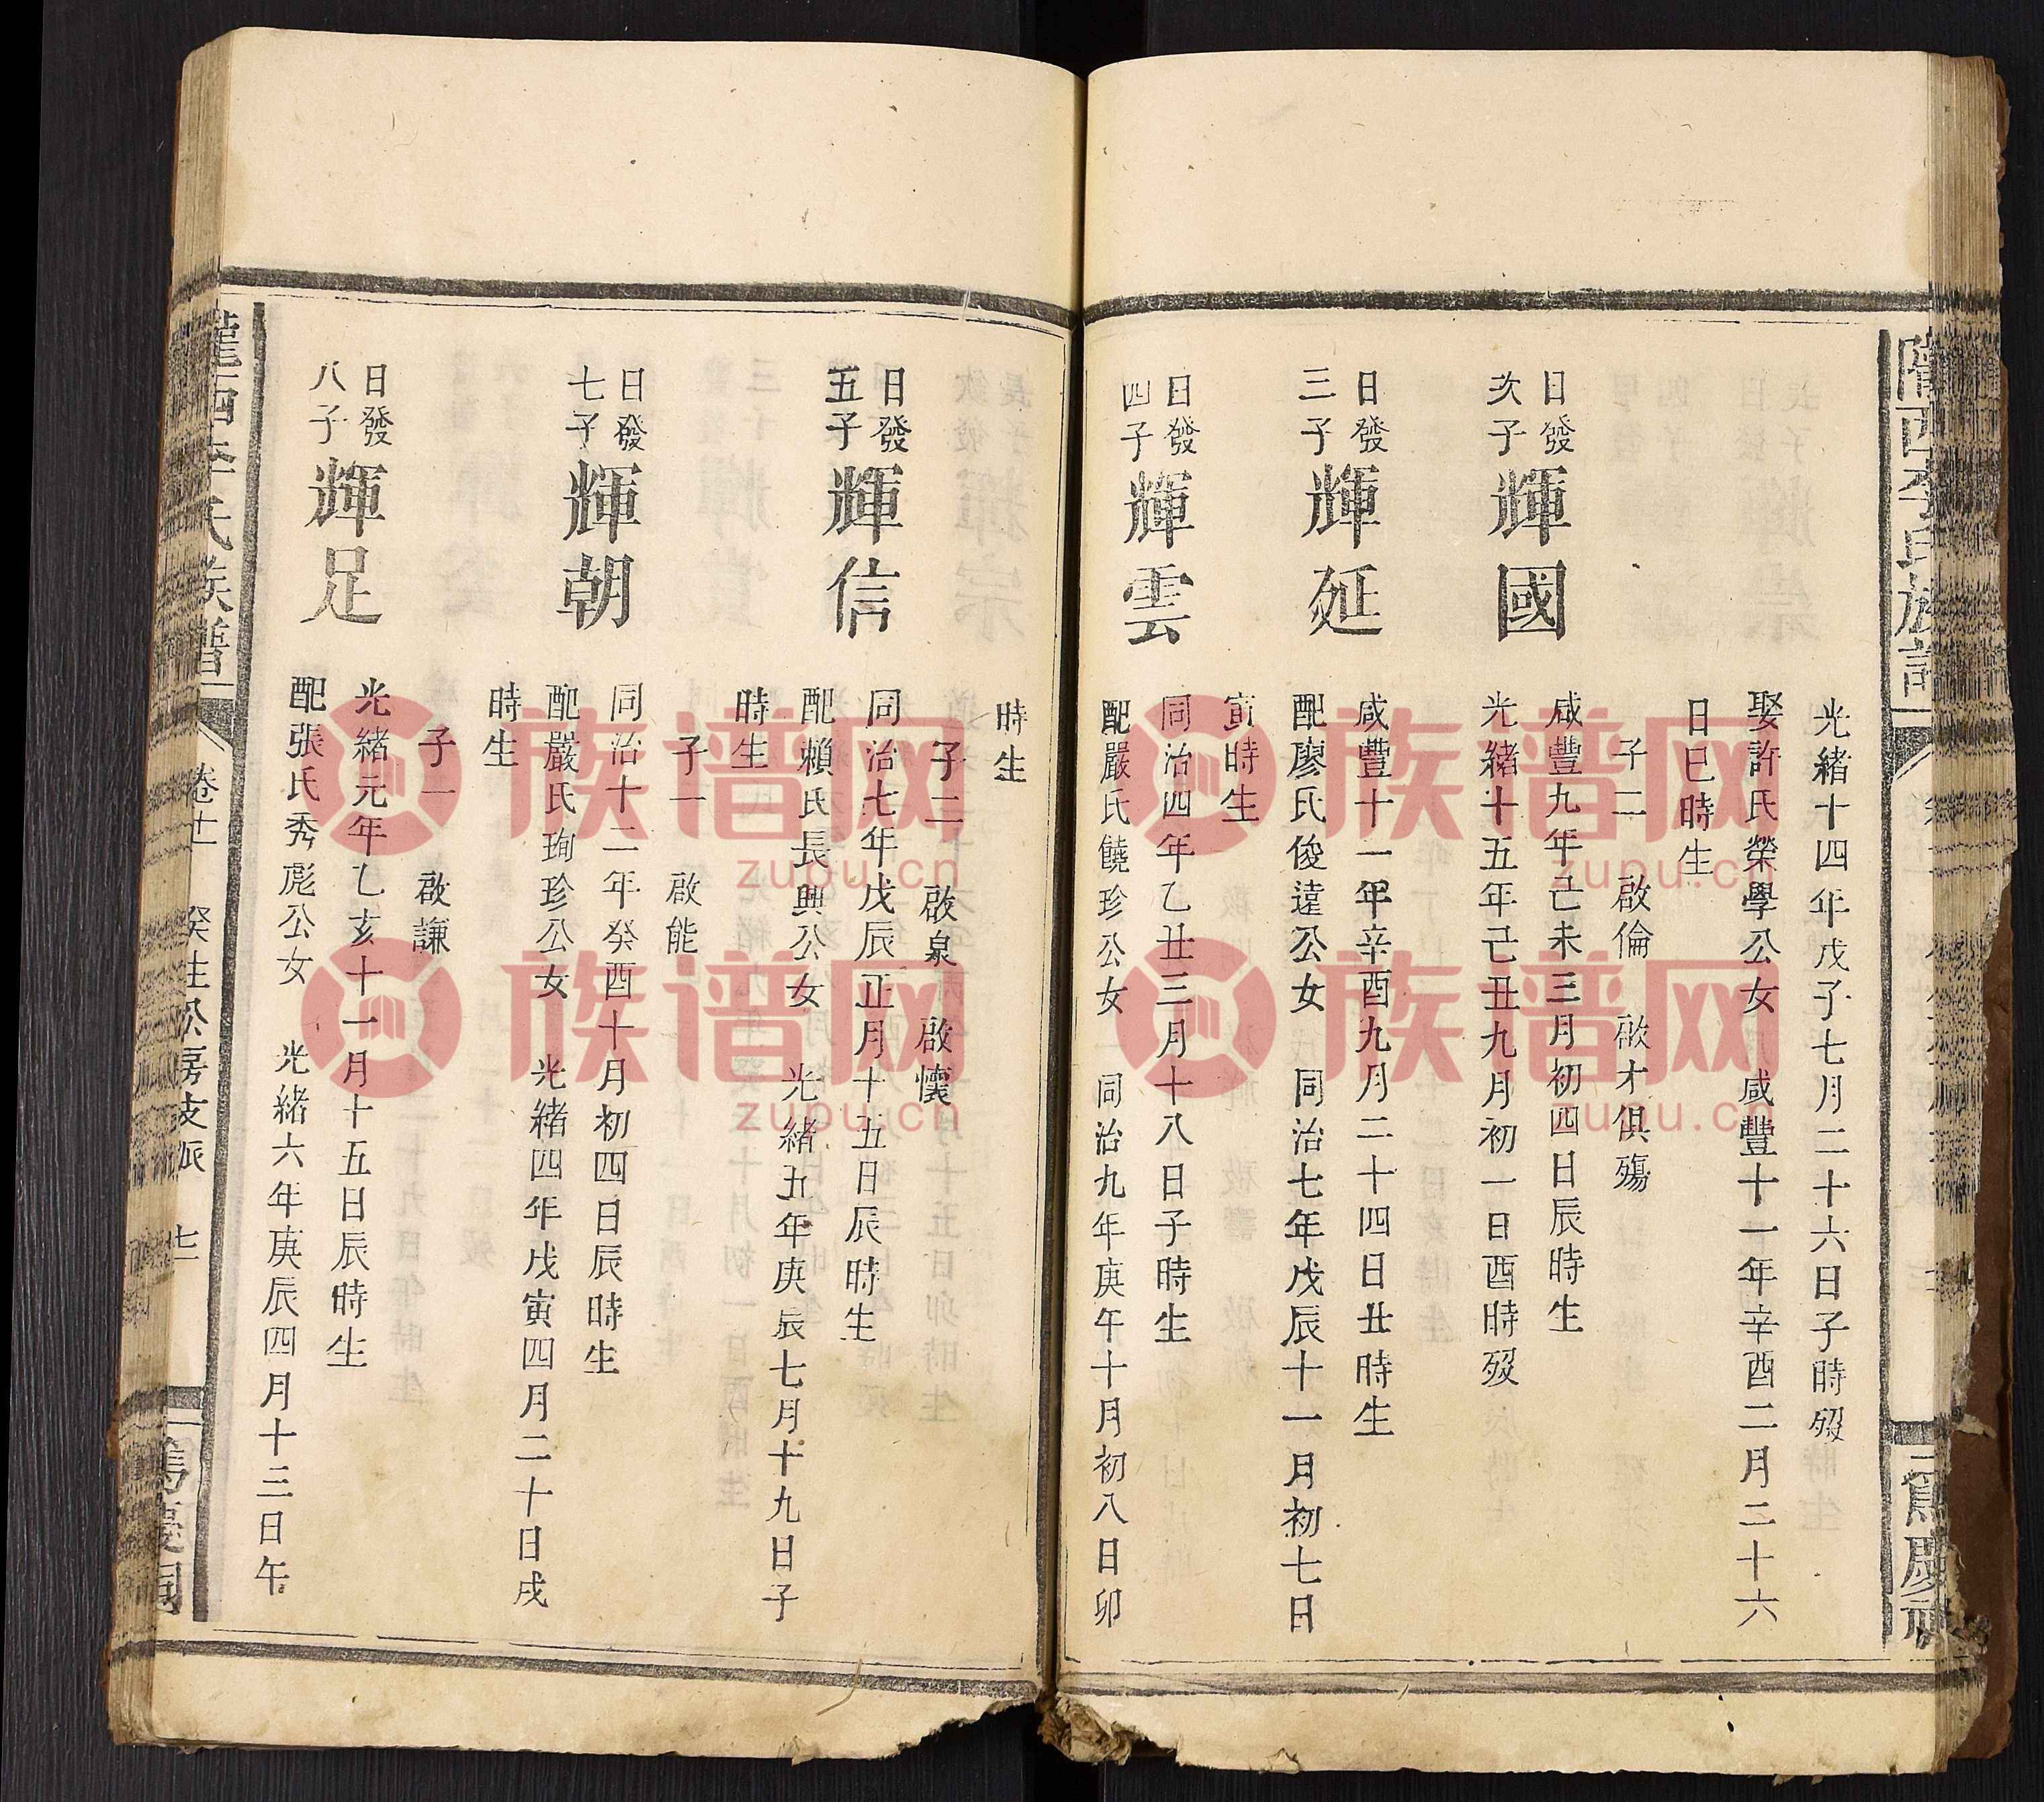 隴西李氏族譜
篤慶祠
光緒十四年戊子七月二十六日子時歿
娶許氏榮學公女 咸豐十一年辛酉二月二十六
日巳時生
子二 啟倫 啟才俱殤
日發次子輝國
咸豐九年己未三月初四日辰時生
光緒十五年己丑九月初一日酉時歿
日發三子輝延
咸豐十一年辛酉九月二十四日丑時生
配廖氏俊遠公女 同治七年戊辰十一月初七日
寅時生
日發四子輝雲
同治四年乙丑三月十八日子時生
配嚴氏饒珍公女 同治九年庚午十月初八日卯
時生
子二 啟泉 啟懷
日發五子輝信
同治七年戊辰正月十五日辰時生
配賴氏長興公女 光緒五年庚辰七月十九日子
時生
子一 啟能
日發七子輝朝
同治十二年癸酉十月初四日辰時生
配嚴氏珣珍公女 光緒四年戊寅四月二十日戌
時生
子一 啟謙
日發八子輝足
光緒元年乙亥十一月十五日辰時生
配張氏秀彪公女 光緒六年庚辰四月十三日午
隴西李氏族譜
卷十一 癸生公房支派
篤慶祠
族谱网
zupu.cn
族谱网
zupu.cn
族谱网
zupu.cn
族谱网
zupu.cn